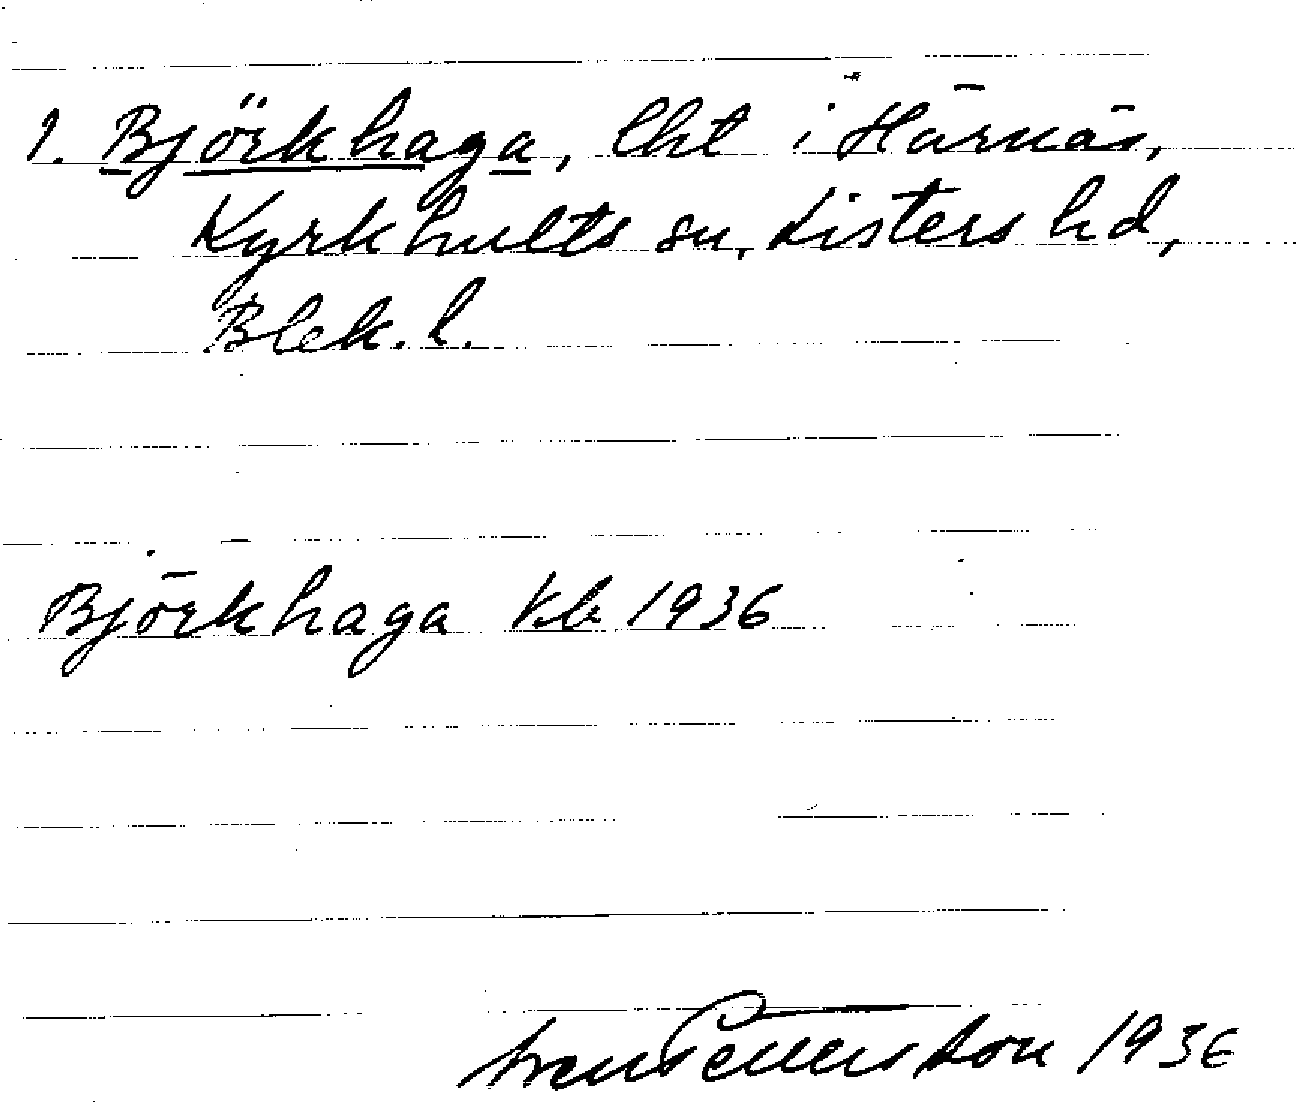 1. Björkhaga, lht i Härnäs,
Kyrkhults sn, Listers hd,
Blek. l.
Björkhaga kb 1936
Sven Pettersson 1936